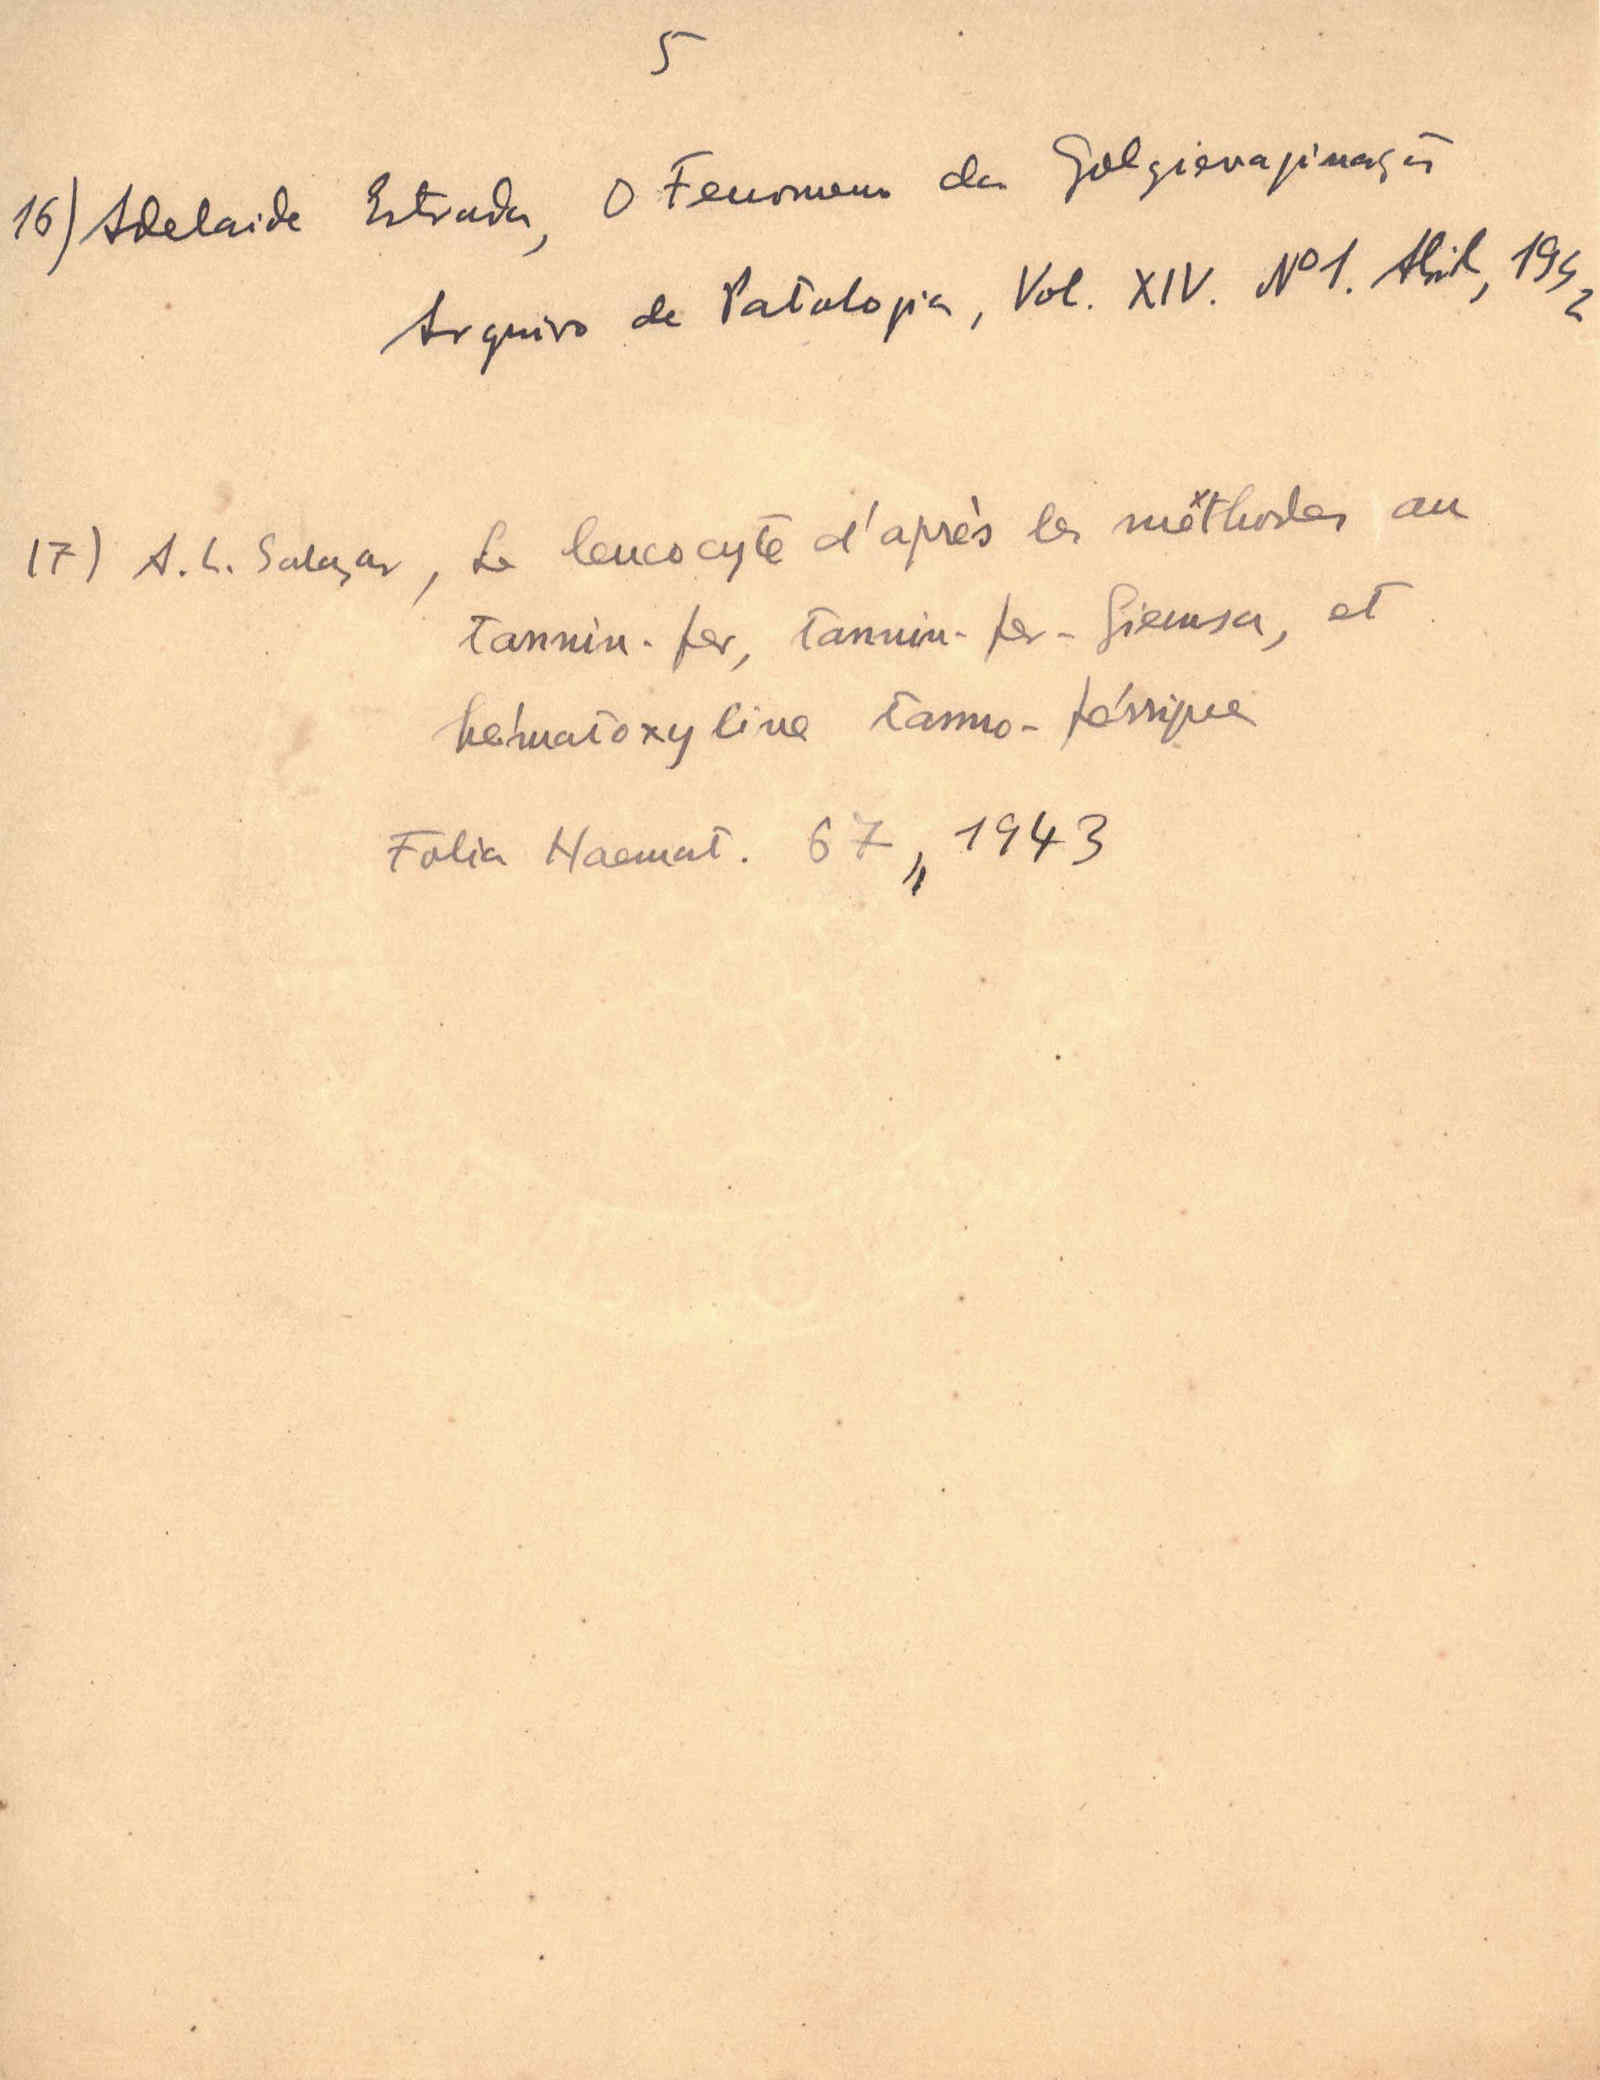 5
16) Adelaide Estrada, O Fenomeno da Golgievaginação
Arquivo de Patologia, Vol. XIV. Nº1. Abril, 1942
17) A. L. Salazar, Le leucocyte d'après les méthodes au
tannin-fer, tannin-fer-Giemsa, et
hématoxyline tanno-férrique
Folia Haemat. 67, 1943